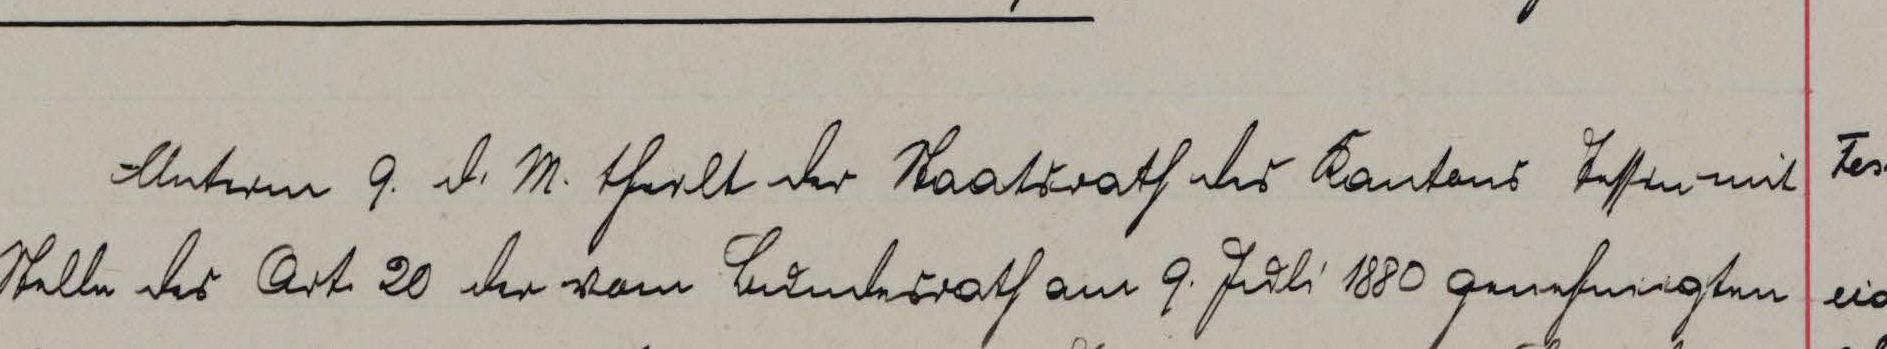 Unterm 9. d. M. theilt der Staatsrath des Kantons Tessin mit
Stelle des Art. 20 der vom Bundesrath am 9. Juli 1880 genehmigten